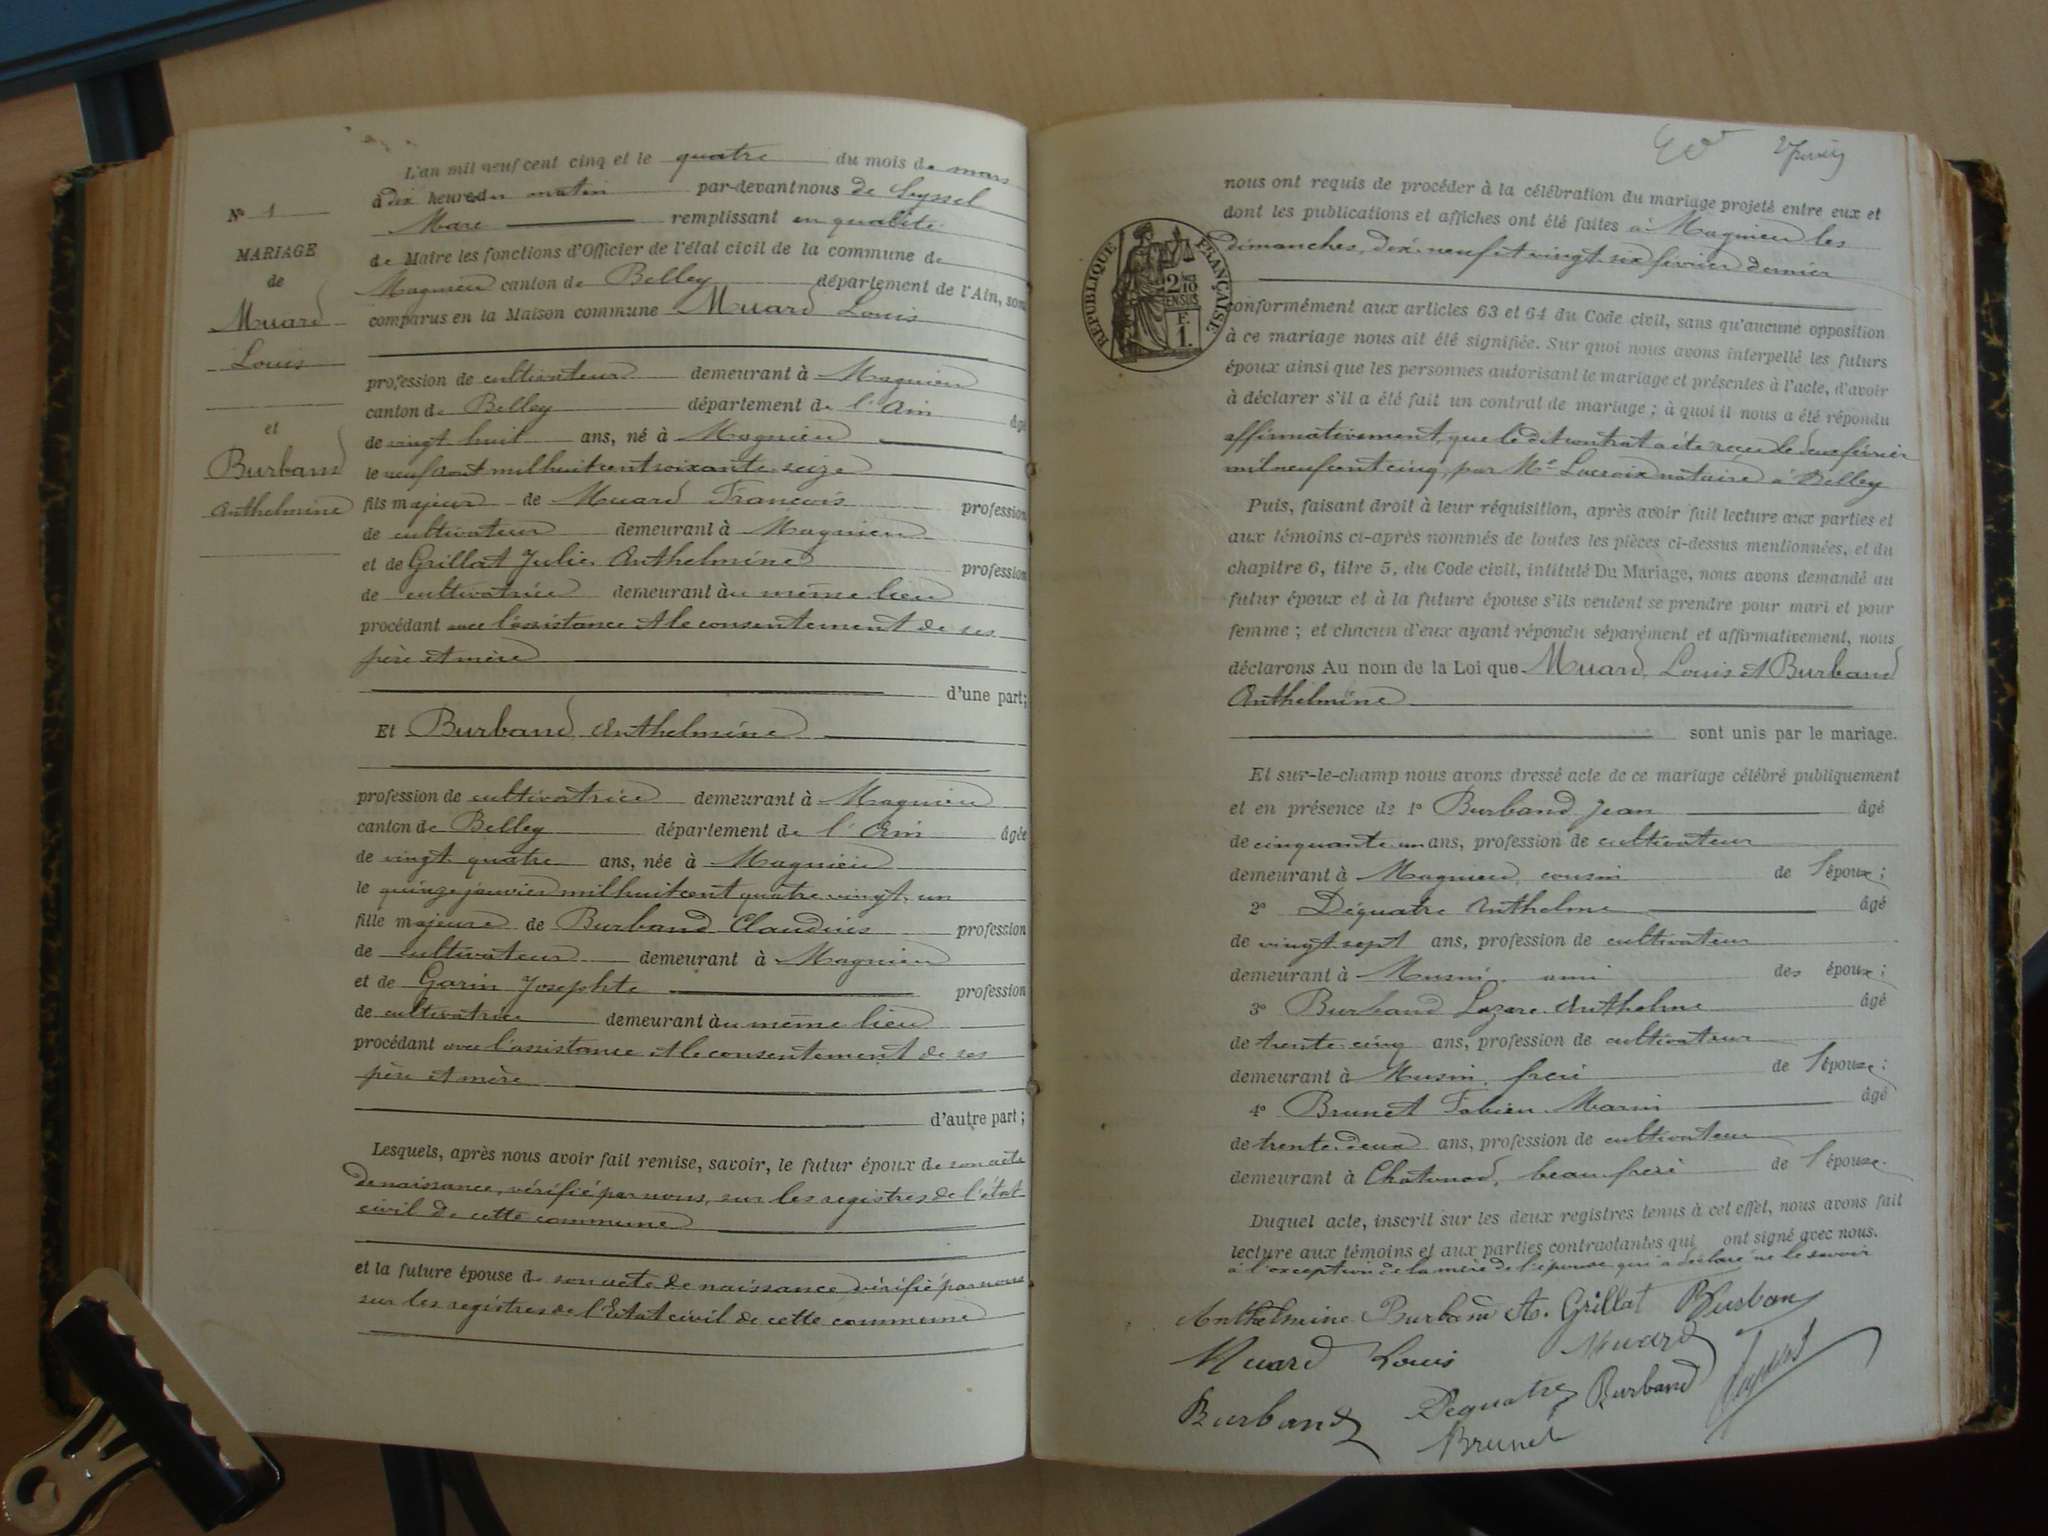 L'an mil neuf cent cinq et le quatre du mois de mars
à dix heures du matin par-devant nous de Seyssel
Marc remplissant en qualité
de Maire les fonctions d'Officier de l'état civil de la commune de
Magnieu canton de Belley département de l'Ain, sont
comparus en la Maison commune Muard Louis
N° 1
MARIAGE
de
Muard
Louis
et
Burband
Anthelmine
profession de cultivateur demeurant à Magnieu
canton de Belley département de l'Ain âgé
de vingt huit ans, né à Magnieu
le neuf août mil huit cent soixante seize
fils majeur de Muard François profession
de cultivateur demeurant à Magnieu
et de Grillat Julie Anthelmine profession
de cultivatrice demeurant au même lieu
procédant avec l'assistance et le consentement de ses
père et mère
d'une part;
Et Burband Anthelmine
profession de cultivatrice demeurant à Magnieu
canton de Belley département de l'Ain âgée
de vingt quatre ans, née à Magnieu
le quinze janvier mil huit cent quatre vingt un
fille majeure de Burband Claudius profession
de cultivateur demeurant à Magnieu
et de Garin Josephte profession
de cultivatrice demeurant au même lieu
procédant avec l'assistance et le consentement de ses
père et mère
d'autre part;
Lesquels, après nous avoir fait remise, savoir, le futur époux de son acte
de naissance, vérifié par nous, sur les registres de l'état
civil de cette commune
et la future épouse de son acte de naissance vérifié par nous
sur les registres de l'Etat civil de cette commune
nous ont requis de procéder à la célébration du mariage projeté entre eux et
dont les publications et affiches ont été faites à Magnieu les
dimanches, dix-neuf et vingt six février dernier
RÉPUBLIQUE FRANÇAISE
2/10
EN SUS
F.
1.
conformément aux articles 63 et 64 du Code civil, sans qu'aucune opposition
à ce mariage nous ait été signifiée. Sur quoi nous avons interpellé les futurs
époux ainsi que les personnes autorisant le mariage et présentes à l'acte, d'avoir
à déclarer s'il a été fait un contrat de mariage; à quoi il nous a été répondu
affirmativement, que le dit contrat a été reçu le deux février
mil neuf cent cinq, par Me Lacroix notaire à Belley
Puis, faisant droit à leur réquisition, après avoir fait lecture aux parties et
aux témoins ci-après nommés de toutes les pièces ci-dessus mentionnées, et du
chapitre 6, titre 5, du Code civil, intitulé Du Mariage, nous avons demandé au
futur époux et à la future épouse s'ils veulent se prendre pour mari et pour
femme; et chacun d'eux ayant répondu séparément et affirmativement, nous
déclarons Au nom de la Loi que Muard Louis et Burband
Anthelmine
sont unis par le mariage.
Et sur-le-champ nous avons dressé acte de ce mariage célébré publiquement
et en présence de 1° Burband Jean âgé
de cinquante un ans, profession de cultivateur
demeurant à Magnieu, cousin de l'époux;
2° Dequatre Anthelme âgé
de vingt sept ans, profession de cultivateur
demeurant à Musin, ami des époux;
3° Burband Lazare Anthelme âgé
de trente cinq ans, profession de cultivateur
demeurant à Musin, frère de l'épouse;
4° Brunet Fabien Marin âgé
de trente deux ans, profession de cultivateur
demeurant à Chatonod, beau frère de l'épouse.
Duquel acte, inscrit sur les deux registres tenus à cet effet, nous avons fait
lecture aux témoins et aux parties contractantes qui ont signé avec nous.
à l'exception de la mère de l'épouse qui a déclaré ne le savoir
Anthelmine Burband At. Grillat Burban
Muard Louis Muard
Burband Dequatre Burband
Brunet